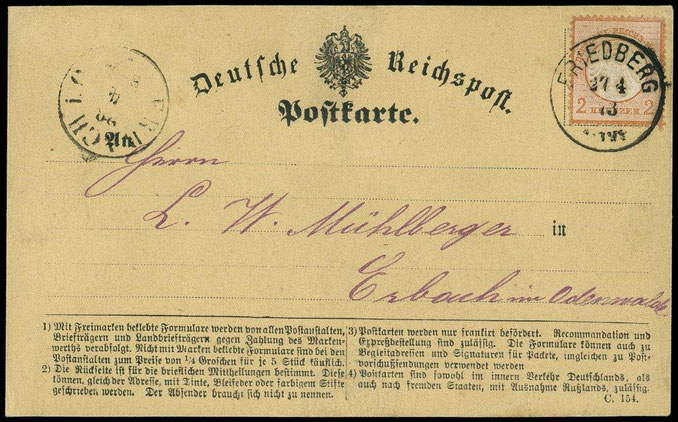 Deutsche Reichspost.
Postkarte.
FRIEDBERG
27 4
73
2 KREUZER 2
An
Herrn
L. W. Mühlberger in
Erbach im Odenwalde
1) Mit Freimarken beklebte Formulare werden von allen Postanstalten,
Briefträgern und Landbriefträgern gegen Zahlung des Marken-
werths verabfolgt. Nicht mit Marken beklebte Formulare sind bei den
Postanstalten zum Preise von 1/4 Groschen für je 5 Stück käuflich.
2) Die Rückseite ist für die brieflichen Mittheilungen bestimmt. Diese
können, gleich der Adresse, mit Tinte, Bleifeder oder farbigem Stifte
geschrieben werden. Der Absender braucht sich nicht zu nennen.
3) Postkarten werden nur frankirt befördert. Recommandation und
Expreßbestellung sind zulässig. Die Formulare können auch zu
Begleitadressen und Signaturen für Packete, ungleichen zu Post-
vorschußsendungen verwendet werden
4) Postkarten sind sowohl im innern Verkehr Deutschlands, als
auch nach fremden Staaten, mit Ausnahme Rußlands, zulässig.
C. 154.